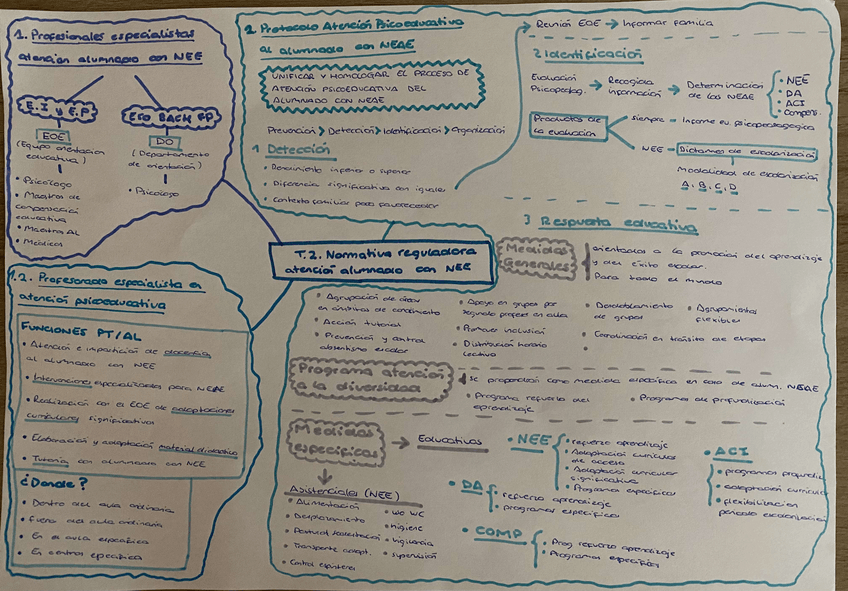 1. Profesionales especialistas
atención alumnado con NEE
E.I y E.P
EOE
(Equipo orientación
educativa)
• Psicólogo
• Maestros de
compensación
educativa
• Maestro AL
• Médicos
ESO BACH FP
DO
(Departamento
de orientación)
• Psicólogo
1.2. Profesorado especialista en
atención psicoeducativa
FUNCIONES PT/AL
• Atención e impartición de docencia
al alumnado con NEE
• Intervenciones especializadas para NEAE
• Realización con el EOE de adaptaciones
curriculares significativas
• Elaboración y adaptación material didáctico
• Tutoría con alumnado con NEE
¿Donde?
• Dentro del aula ordinaria
• Fuera del aula ordinaria
• En el aula específica
• En centros específica
T.2. Normativa reguladora
atención alumnado con NEE
2 Protocolo Atención Psicoeducativa
al alumnado con NEAE
UNIFICAR Y HOMOLOGAR EL PROCESO DE
ATENCIÓN PSICOEDUCATIVA DEL
ALUMNADO CON NEAE
Prevención > Detección > Identificación > Organización
1 Detección
• Rendimiento inferior o superior
• Diferencia significativa con iguales
• Contexto familiar poco favorecedor
Reunión EOE → Informar familia
2 Identificación
Evaluación
Psicopedag.
→ Recogida
información
→ Determinación
de las NEAE
• NEE
• DA
• ACI
• Compens.
Productos de
la evaluación
siempre → Informe ev. psicopedagógica
NEE → Dictamen de escolarización
Modalidad de escolarización
A, B, C, D
3 Respuesta educativa
Medidas
Generales
orientadas a la promoción del aprendizaje
y del éxito escolar.
Para todo el mundo
• Agrupación de áreas
en ámbitos de conocimiento
• Acción tutorial
• Prevención y control
absentismo escolar
• Apoyo en grupos por
segundo profesor en aula
• Promover inclusión
• Distribución horario
lectivo
• Desdoblamiento
de grupos
• Coordinación en tránsito de etapas
• Agrupamientos
flexibles
Programa atención
a la diversidad
se propondrán como medida específica en caso de alumn. NEAE
• Programa refuerzo del
aprendizaje
• Programas de profundización
Medidas
específicas
→ Educativas
Asistenciales (NEE)
• Alimentación
• Desplazamiento
• Transporte adapt.
• Control esfínteres
• uso WC
• higiene
• vigilancia
• supervisión
• NEE
• refuerzo aprendizaje
• Adaptación currículos
de acceso
• Adaptación curricular
significativa
• Programas específicos
• DA
• refuerzo aprendizaje
• programas específicos
• COMP
• Prog refuerzo aprendizaje
• Programas específicos
• ACI
• programas profundiz
• adaptación curricular
• flexibilización
periodo escolarización